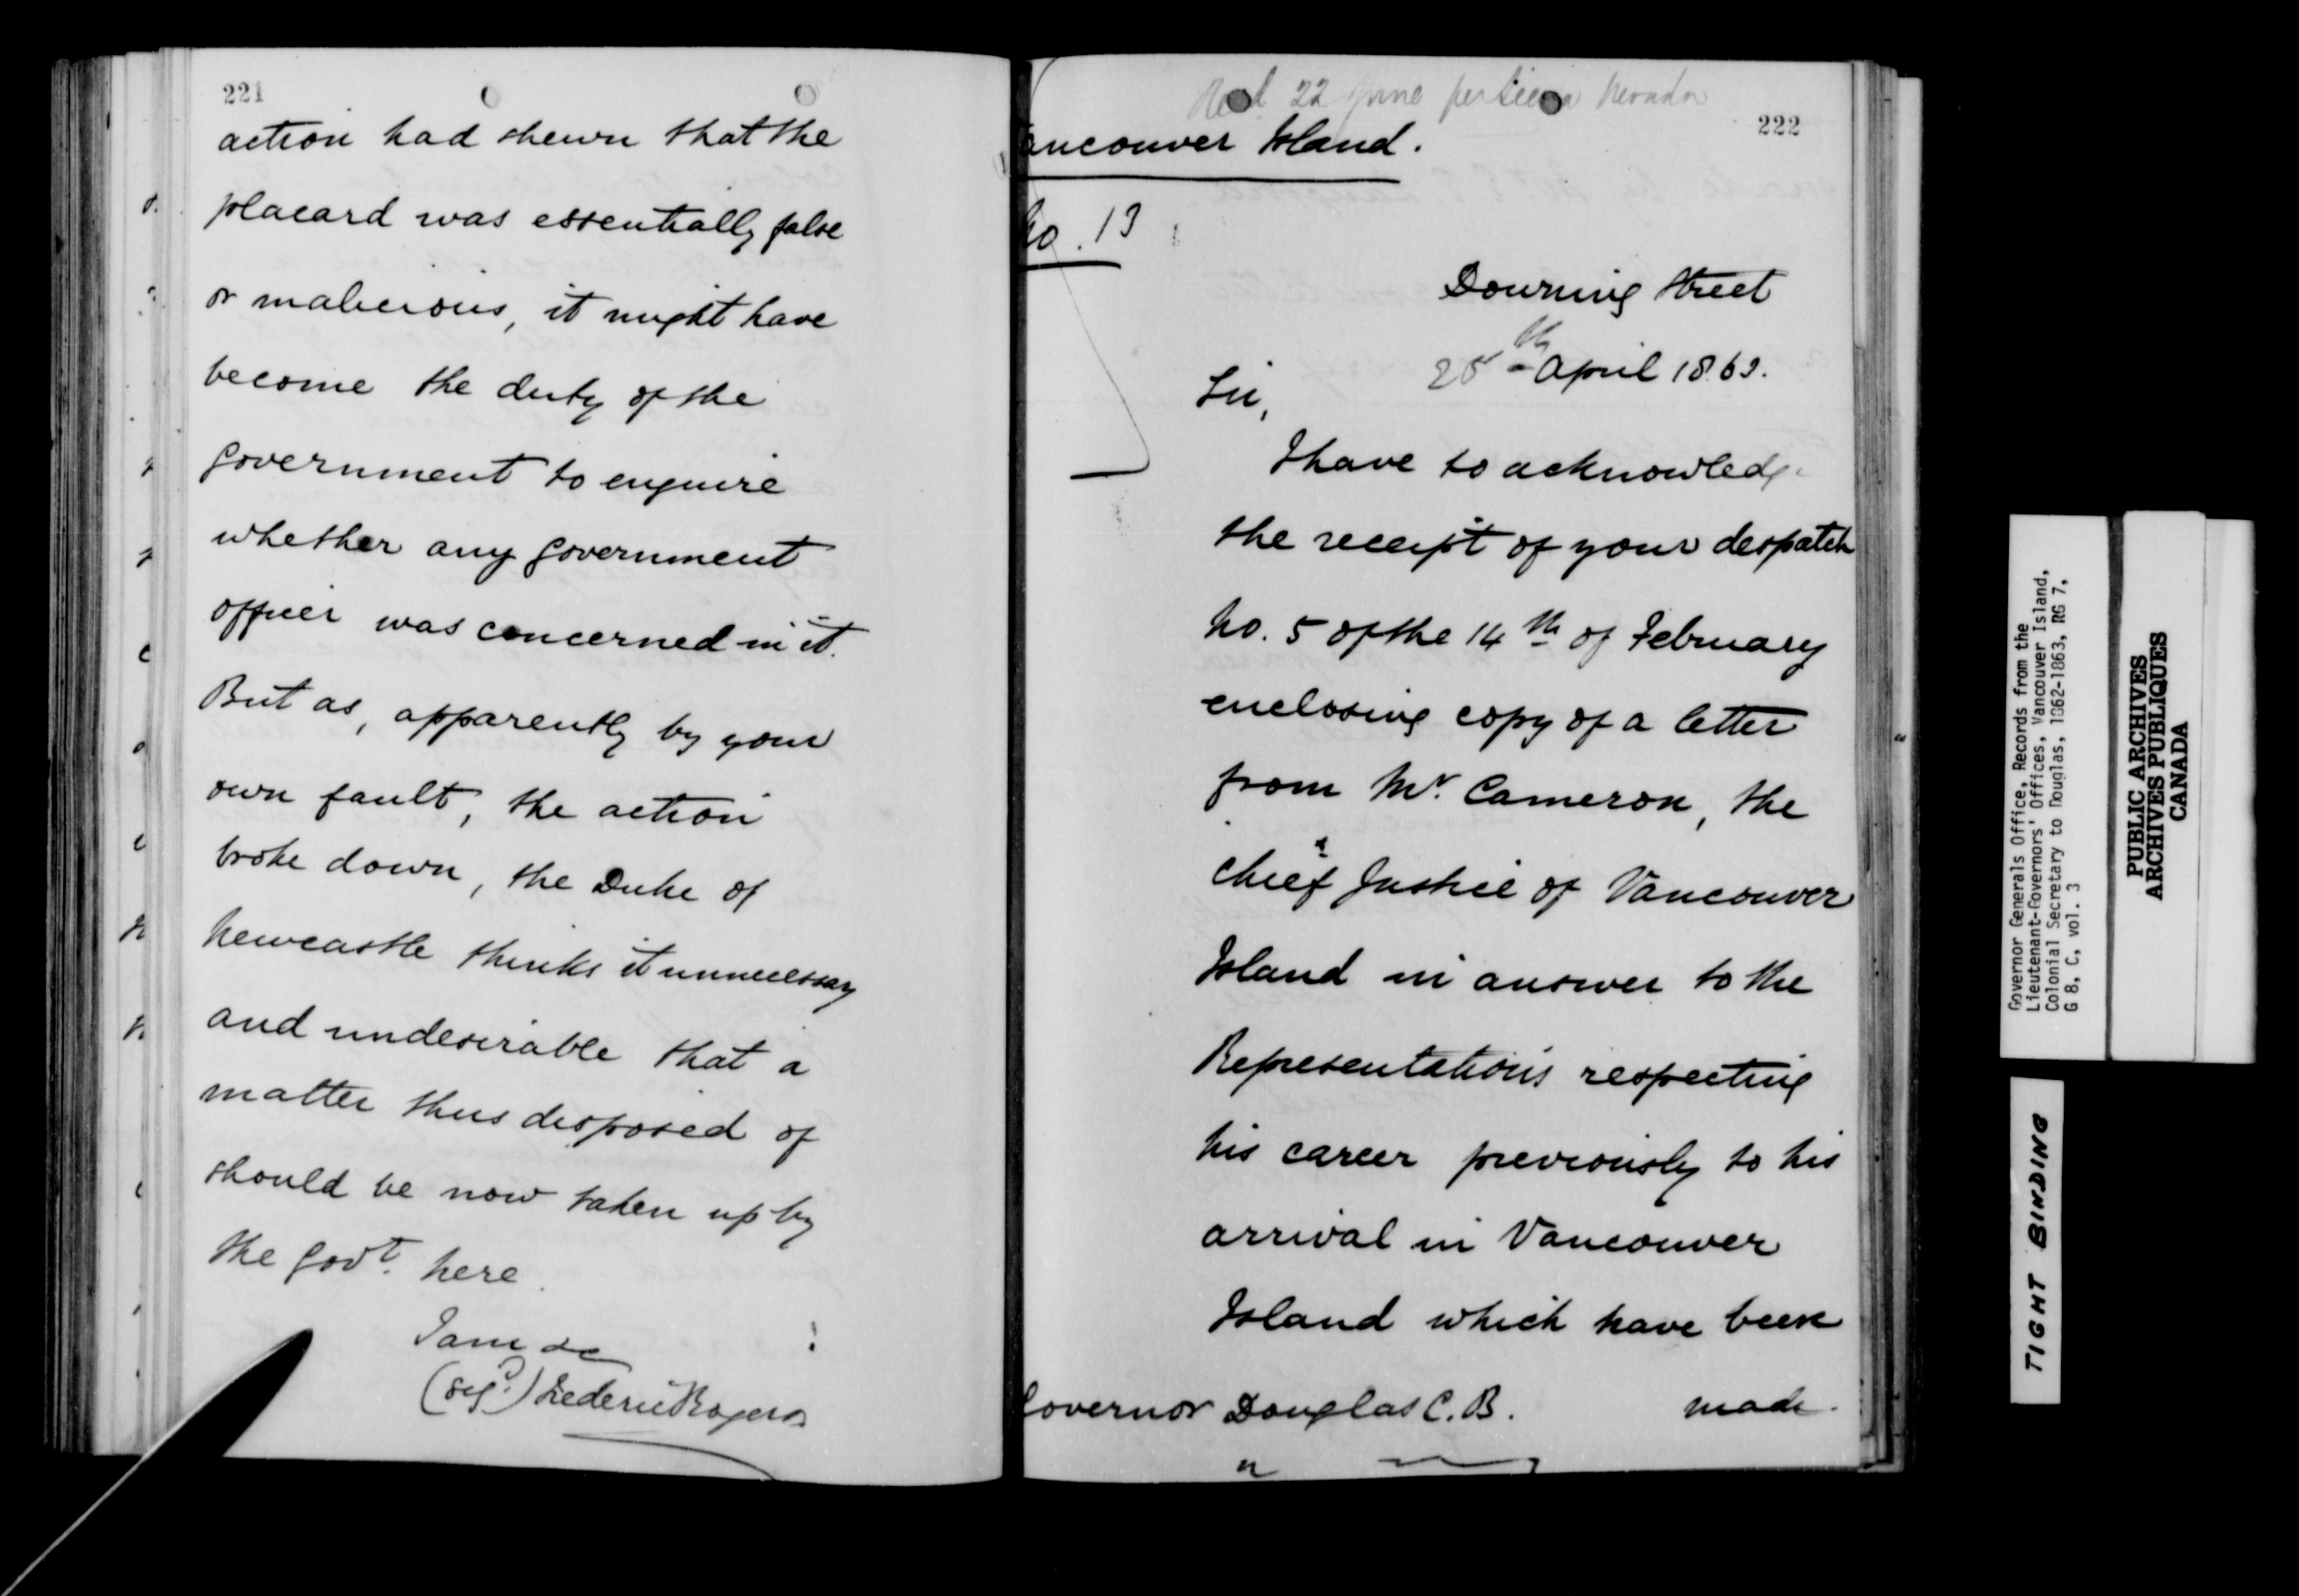 221
action had shewn that the
placard was essentially false
or malicious, it might have
become the duty of the
Government to enquire
whether any Government
officer was concerned in it.
But as, apparently by your
own fault, the action
broke down, the Duke of
Newcastle thinks it unnecessary
and undesirable that a
matter thus disposed of
should be now taken up by
the Govt. here.
I am &c
(Sigd.) Frederic Rogers
22 June per Nevada
222
ancouver Island.
No. 13
Downing Street
th April 1863.
Sir,
I have to acknowledge
the receipt of your despatch
No. 5 of the 14th of February
enclosing copy of a letter
from Mr. Cameron, the
Chief Justice of Vancouver
Island in answer to the
Representations respecting
his career previously to his
arrival in Vancouver
Island which have been
Governor Douglas C.B. made
Governor Generals Office, Records from the
Lieutenant-Governors' Offices, Vancouver Island,
Colonial Secretary to Douglas, 1862-1863, RG 7,
G 8, C, vol. 3
PUBLIC ARCHIVES
ARCHIVES PUBLIQUES
CANADA
TIGHT BINDING